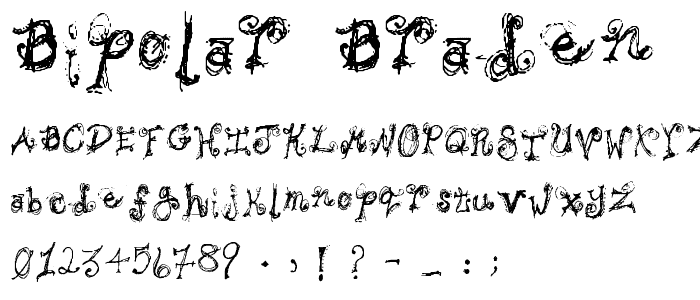 Bipolar Braden
ABCDEFGHIJKLMNOPQRSTUVWXYZ
abcdefghijklmnopqrstuvwxyz
0123456789 . , ! ? - _ : ;